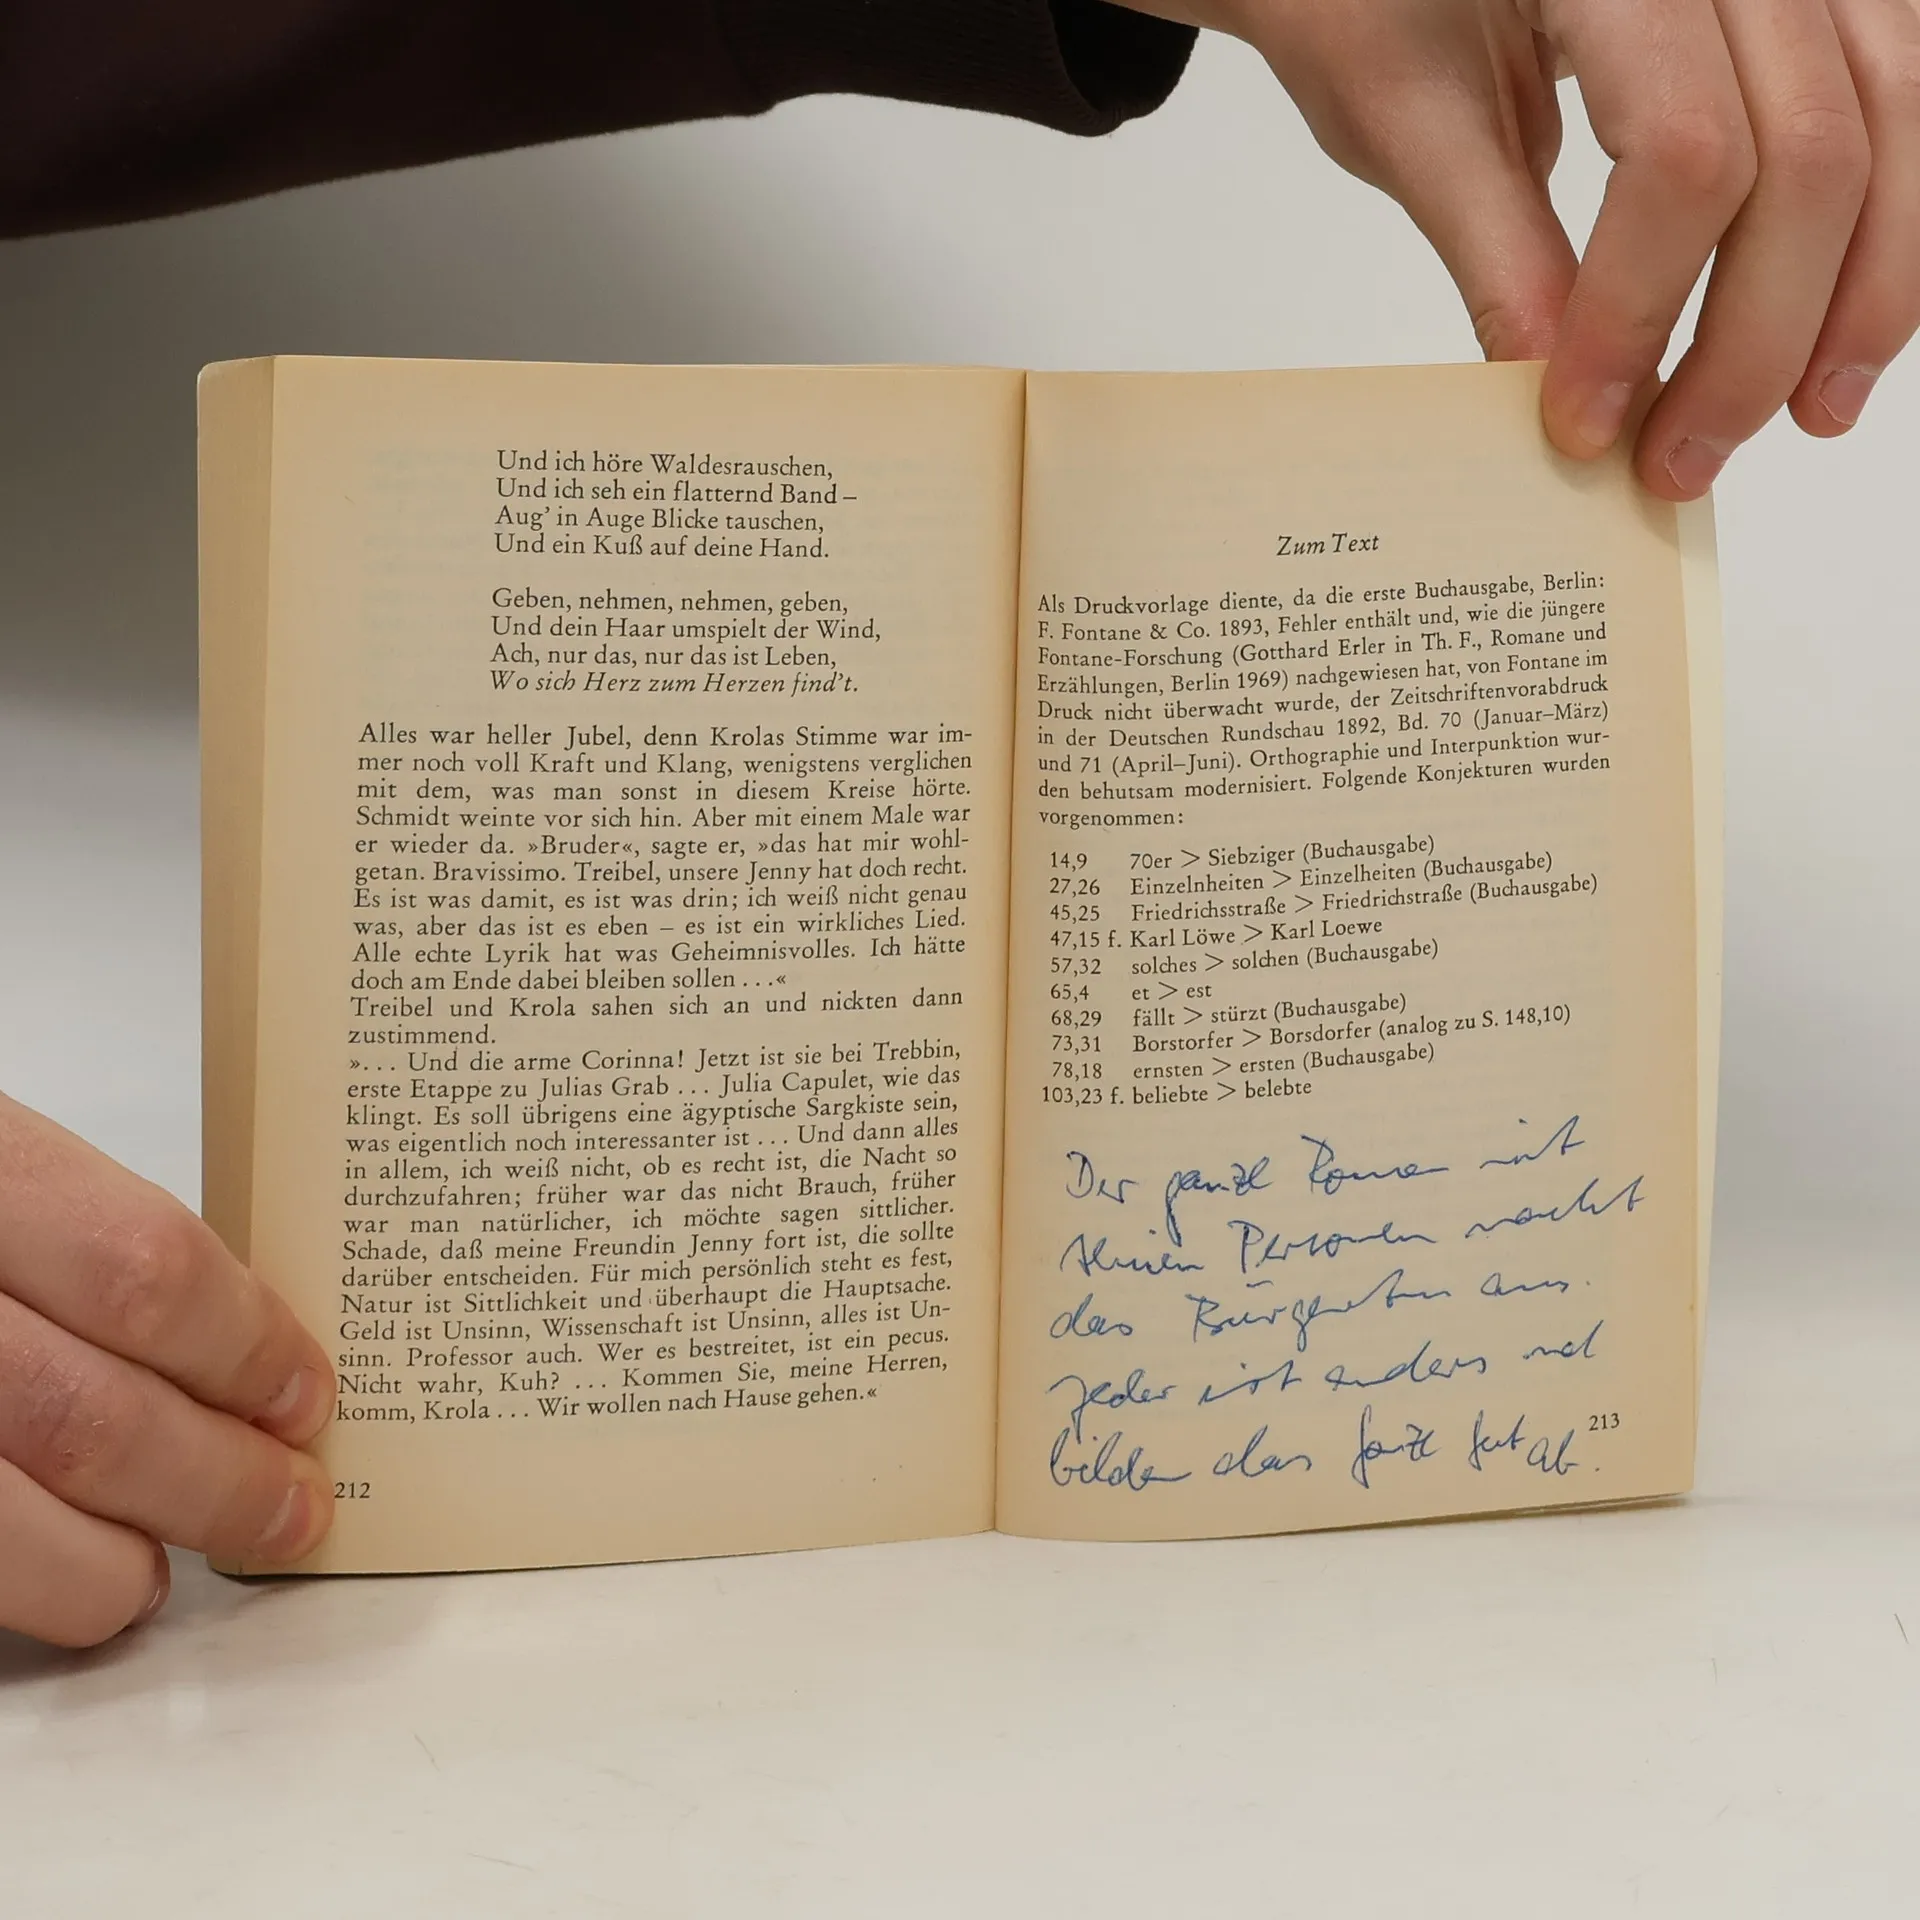 Und ich höre Waldesrauschen,
Und ich seh ein flatternd Band –
Aug’ in Auge Blicke tauschen,
Und ein Kuß auf deine Hand.
Geben, nehmen, nehmen, geben,
Und dein Haar umspielt der Wind,
Ach, nur das, nur das ist Leben,
Wo sich Herz zum Herzen find’t.
Alles war heller Jubel, denn Krolas Stimme war im-
mer noch voll Kraft und Klang, wenigstens verglichen
mit dem, was man sonst in diesem Kreise hörte.
Schmidt weinte vor sich hin. Aber mit einem Male war
er wieder da. »Bruder«, sagte er, »das hat mir wohl-
getan. Bravissimo. Treibel, unsere Jenny hat doch recht.
Es ist was damit, es ist was drin; ich weiß nicht genau
was, aber das ist es eben – es ist ein wirkliches Lied.
Alle echte Lyrik hat was Geheimnisvolles. Ich hätte
doch am Ende dabei bleiben sollen . . .«
Treibel und Krola sahen sich an und nickten dann
zustimmend.
». . . Und die arme Corinna! Jetzt ist sie bei Trebbin,
erste Etappe zu Julias Grab . . . Julia Capulet, wie das
klingt. Es soll übrigens eine ägyptische Sargkiste sein,
was eigentlich noch interessanter ist . . . Und dann alles
in allem, ich weiß nicht, ob es recht ist, die Nacht so
durchzufahren; früher war das nicht Brauch, früher
war man natürlicher, ich möchte sagen sittlicher.
Schade, daß meine Freundin Jenny fort ist, die sollte
darüber entscheiden. Für mich persönlich steht es fest,
Natur ist Sittlichkeit und überhaupt die Hauptsache.
Geld ist Unsinn, Wissenschaft ist Unsinn, alles ist Un-
sinn. Professor auch. Wer es bestreitet, ist ein pecus.
Nicht wahr, Kuh? . . . Kommen Sie, meine Herren,
komm, Krola . . . Wir wollen nach Hause gehen.«
212
Zum Text
Als Druckvorlage diente, da die erste Buchausgabe, Berlin:
F. Fontane & Co. 1893, Fehler enthält und, wie die jüngere
Fontane-Forschung (Gotthard Erler in Th. F., Romane und
Erzählungen, Berlin 1969) nachgewiesen hat, von Fontane im
Druck nicht überwacht wurde, der Zeitschriftenvorabdruck
in der Deutschen Rundschau 1892, Bd. 70 (Januar–März)
und 71 (April–Juni). Orthographie und Interpunktion wur-
den behutsam modernisiert. Folgende Konjekturen wurden
vorgenommen:
14,9 70er > Siebziger (Buchausgabe)
27,26 Einzelnheiten > Einzelheiten (Buchausgabe)
45,25 Friedrichsstraße > Friedrichstraße (Buchausgabe)
47,15 f. Karl Löwe > Karl Loewe
57,32 solches > solchen (Buchausgabe)
65,4 et > est
68,29 fällt > stürzt (Buchausgabe)
73,31 Borstorfer > Borsdorfer (analog zu S. 148,10)
78,18 ernsten > ersten (Buchausgabe)
103,23 f. beliebte > belebte
Der ganze Roman mit
seinen Personen macht
das Bürgertum aus.
Jeder ist anders und
bilden das ganze gut ab.
213